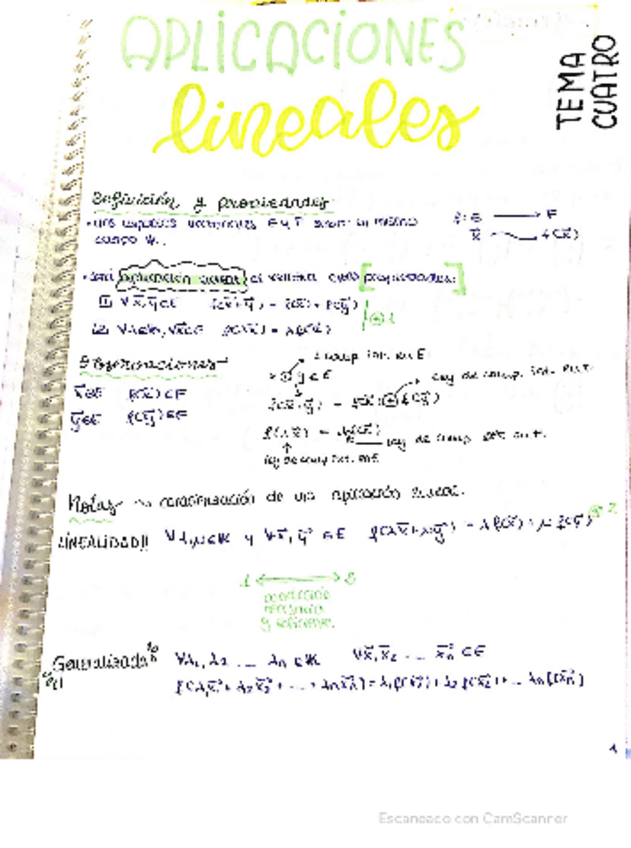 APLICACIONES
lineales
TEMA
CUATRO
Definición y propiedades
f: E → F
campo K.
x⃗ → f(x⃗)
• será aplicación lineal si verifica estas propiedades:
① ∀x⃗, y⃗ ∈ E f(x⃗+y⃗) = f(x⃗) + f(y⃗)
② ∀λ∈K, ∀x⃗∈E f(λx⃗) = λf(x⃗)
Observaciones
x⃗∈E f(x⃗)∈F
y⃗∈E f(y⃗)∈F
ley de comp. int. en F
f(λx⃗) = λf(x⃗)
ley de comp. ext. en F.
ley de comp. ext. en E
Notas ~ caracterización de una aplicación lineal.
¡LINEALIDAD!! ∀λ,μ∈K y ∀x⃗, y⃗ ∈ E f(λx⃗+μy⃗) = λf(x⃗) + μf(y⃗)
condición
necesaria
y suficiente.
Generalizada ∀λ₁, λ₂ ... λn ∈ K ∀x⃗₁, x⃗₂ ... x⃗n ∈ E
f(λ₁x⃗₁ + λ₂x⃗₂ + ... + λnx⃗n) = λ₁f(x⃗₁) + λ₂f(x⃗₂) + ... λnf(x⃗n)
1
Escaneado con CamScanner